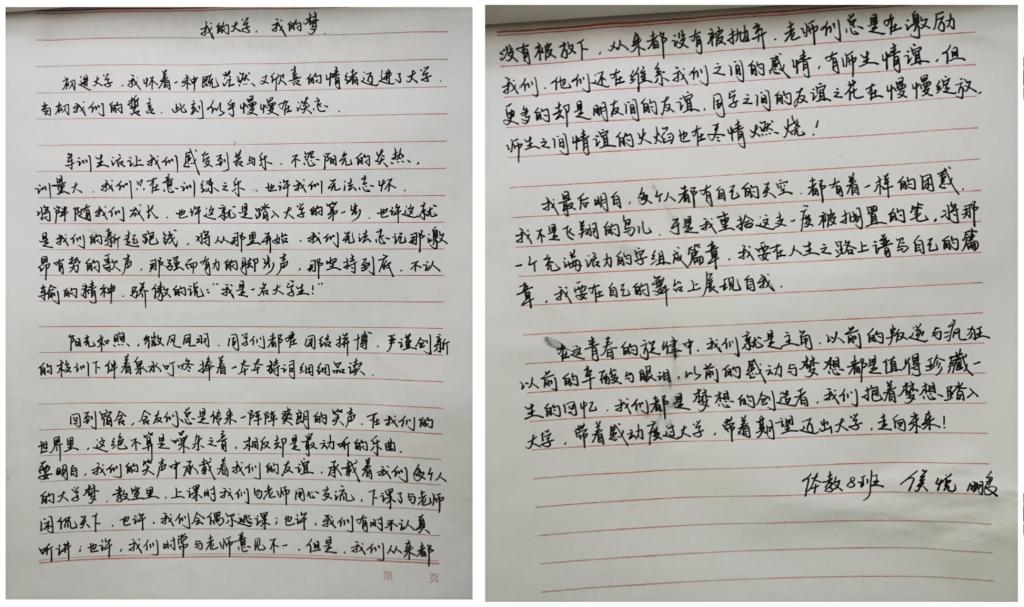 我的大学，我的梦
初进大学，我怀着一种既茫然又欣喜的情绪迈进了大学
当初我们的誓言，此刻似乎慢慢在淡忘．
军训生活让我们感受到苦与乐．不恐阳光的炎热，
训量大，我们只在意训练之乐．也许我们无法忘怀．
将陪随我们成长，也许这就是踏入大学的第一步，也许这就
是我们的新起跑线，将从那里开始．我们无法忘记那激
昂有势的歌声，那强而有力的脚步声，那坚持到底，不认
输的精神．骄傲的说：“我是一名大学生！”
阳光如照，微风凤羽．同学们都在团结拼博，严谨创新
的校训下伴着泉水叮咚捧着一本本诗词细细品读．
回到宿舍，舍友们总是传来一阵阵爽朗的笑声．在我们的
世界里，这绝不算是噪乐之音，相反却是最动听的乐曲．
要明白，我们的笑声中承载着我们的友谊，承载着我们每个人
的大学梦．教室里，上课时我们与老师用心交流，下课了与老师
闲侃天下，也许，我们会偶尔逃课；也许，我们有时不认真
听讲；也许，我们时常与老师意见不一．但是，我们从来都
第 页
没有被放下，从来都没有被抛弃．老师们总是在激励
我们，他们还在维系我们之间的感情，有师生情谊，但
更多的却是朋友间的友谊．同学之间的友谊之花在慢慢绽放．
师生之间情谊的火焰也在尽情燃烧！
我最后明白，每个人都有自己的天空，都有着一样的困惑．
我不是飞翔的鸟儿．于是我重拾这支一度被搁置的笔，将那
一个充满活力的字组成篇章，我要在人生之路上谱写自己的篇
章，我要在自己的舞台上展现自我．
在这青春的旋律中，我们就是主角．以前的叛逆与疯狂
以前的辛酸与眼泪，以前的感动与梦想都是值得珍藏一
生的回忆．我们都是梦想的创造者，我们抱着梦想踏入
大学，带着感动度过大学，带着期望迈出大学，走向未来！
体教8班 侯悦鹏